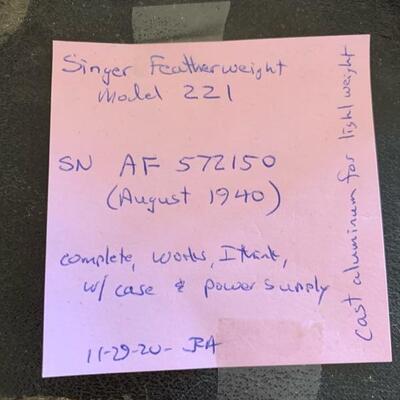 Singer Featherweight
Model 221
SN AF 572150
(August 1940)
complete, works, I think,
w/ case & power supply
11-29-20- JRA
cast aluminum for light weight